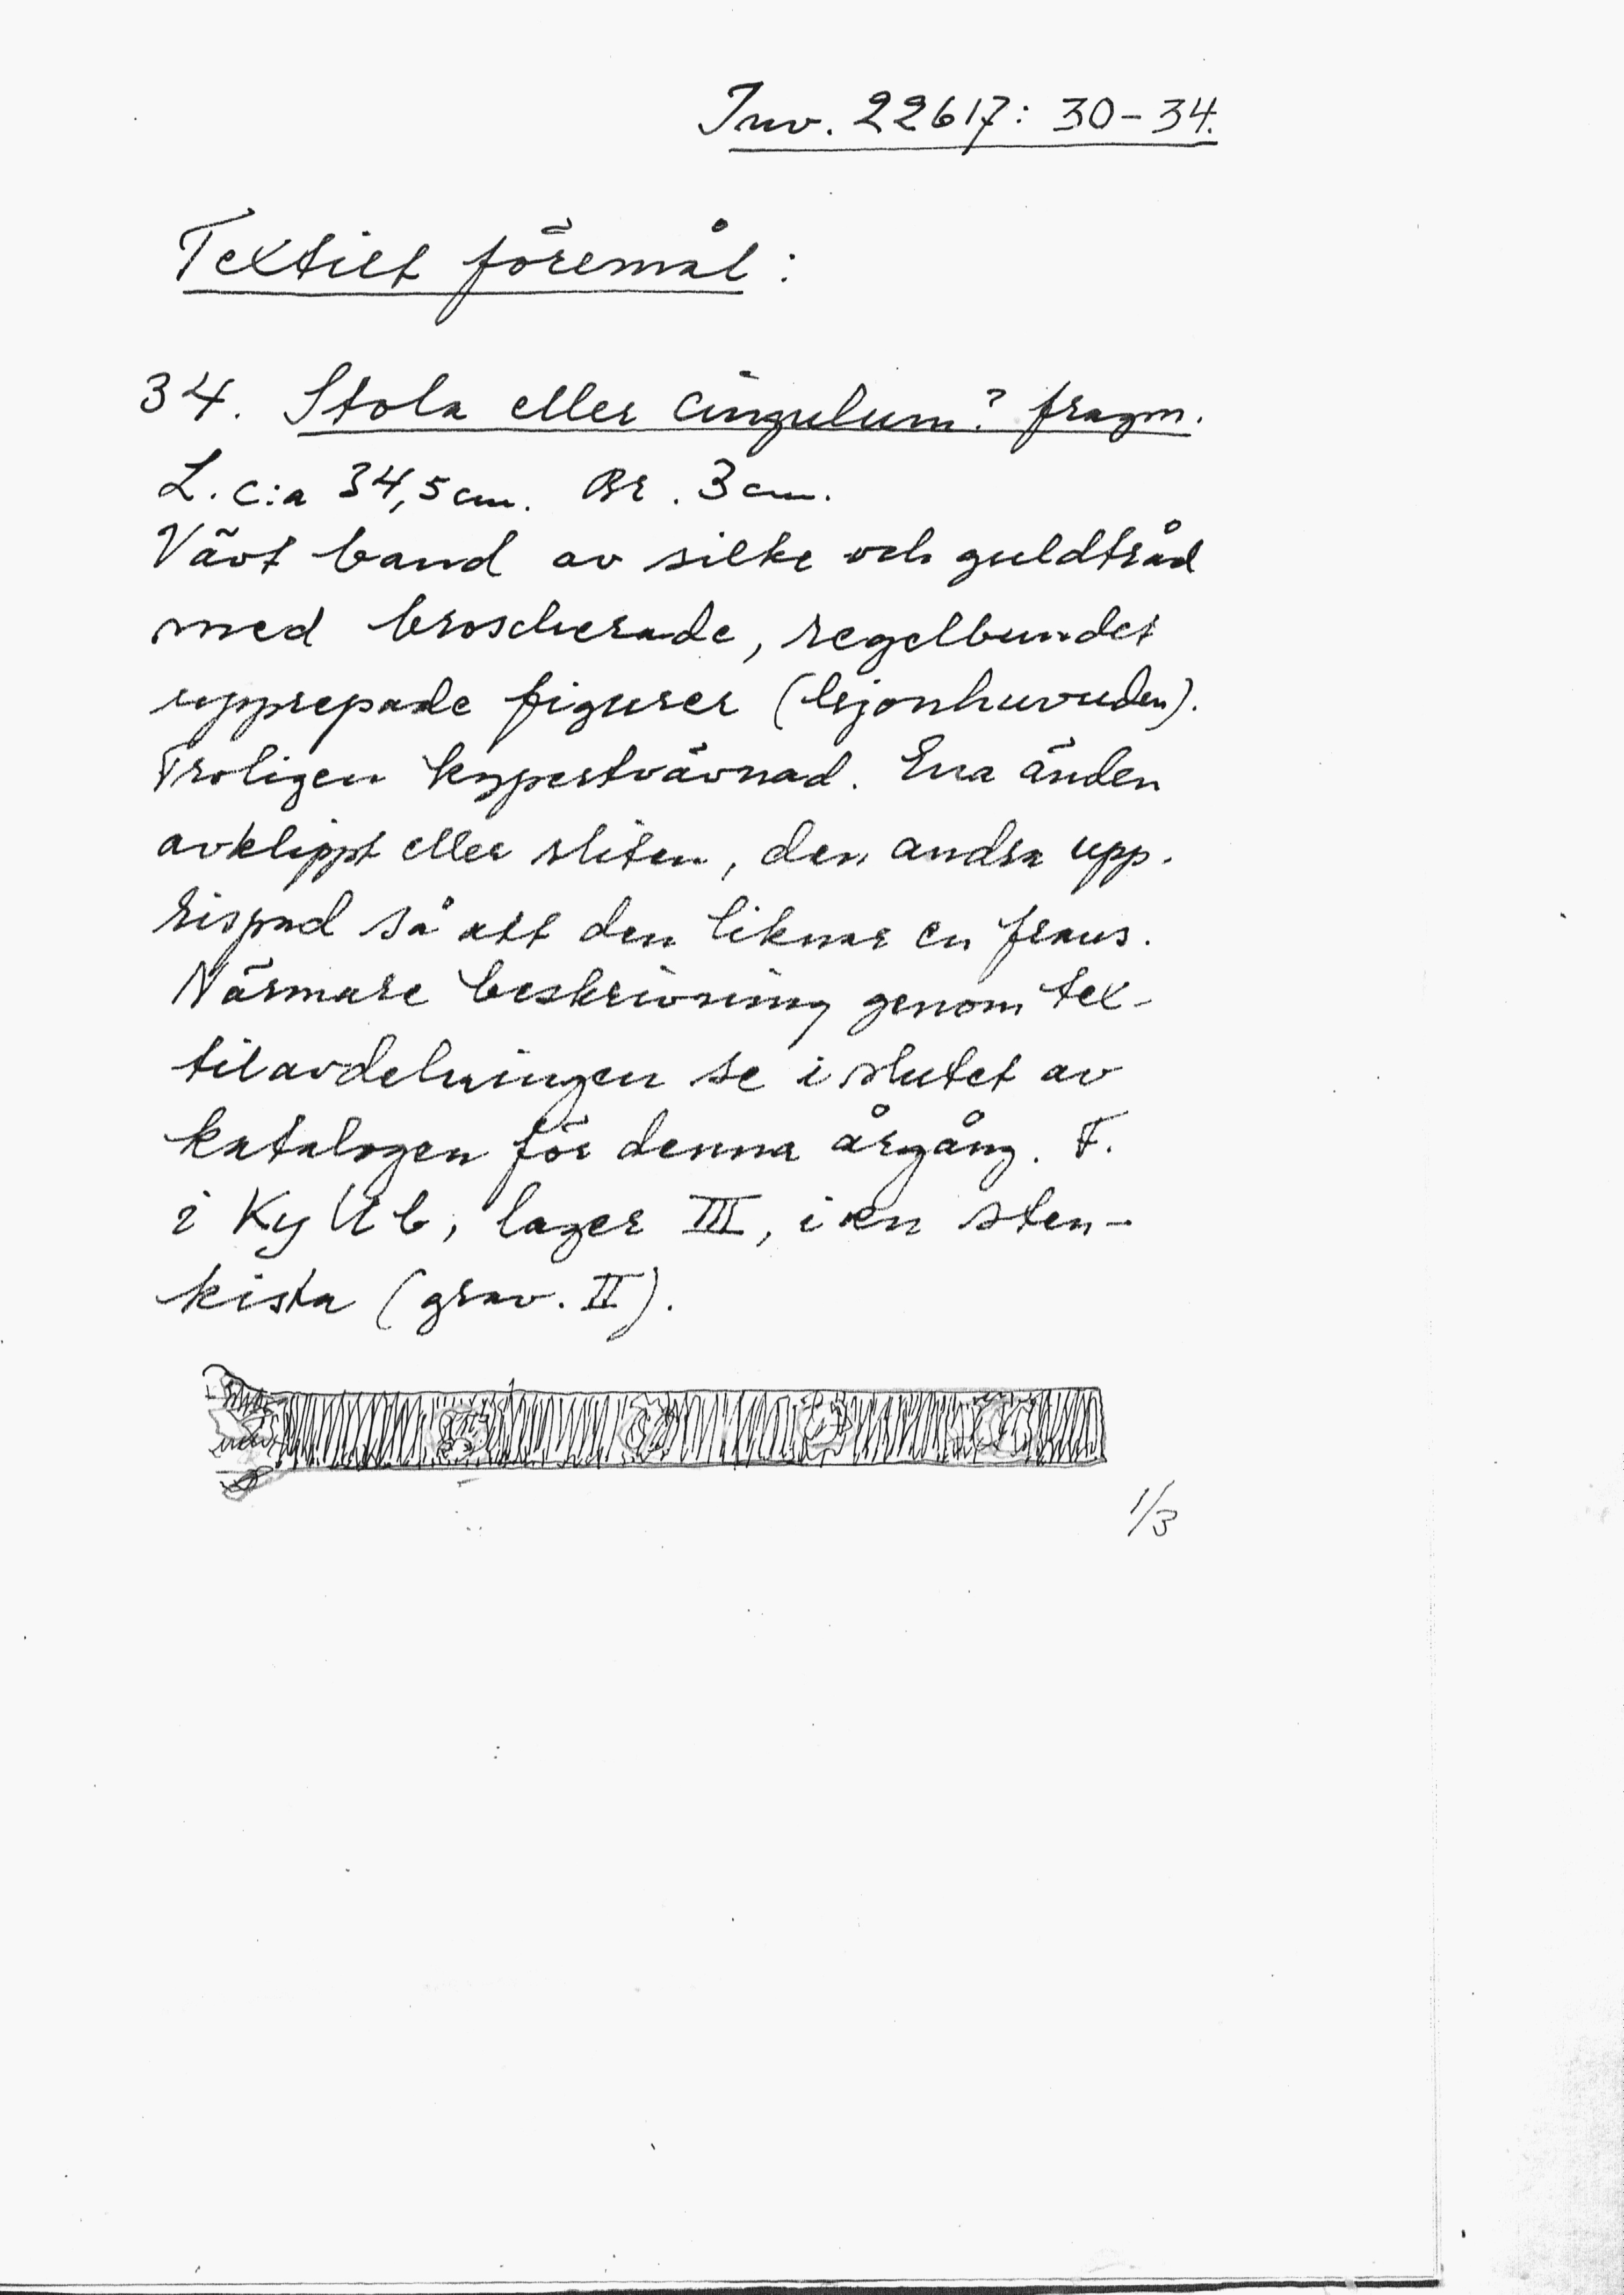 Inv. 22617: 30-34.
Textilt föremål:
34. Stola eller cingulum? fragm.
L. c:a 34,5 cm. Br. 3 cm.
Vävt band av silke och guldtråd
med broscherade, regelbundet
upprepade figurer (lejonhuvuden).
Troligen kypertvävnad. Ena änden
avklippt eller sliten, den andra upp-
rispad så att den liknar en frans.
Närmare beskrivning genom tex-
tilavdelningen se i slutet av
katalogen för denna årgång. F.
i Ky U b, lager III, i en sten-
kista (grav. II).
1/3